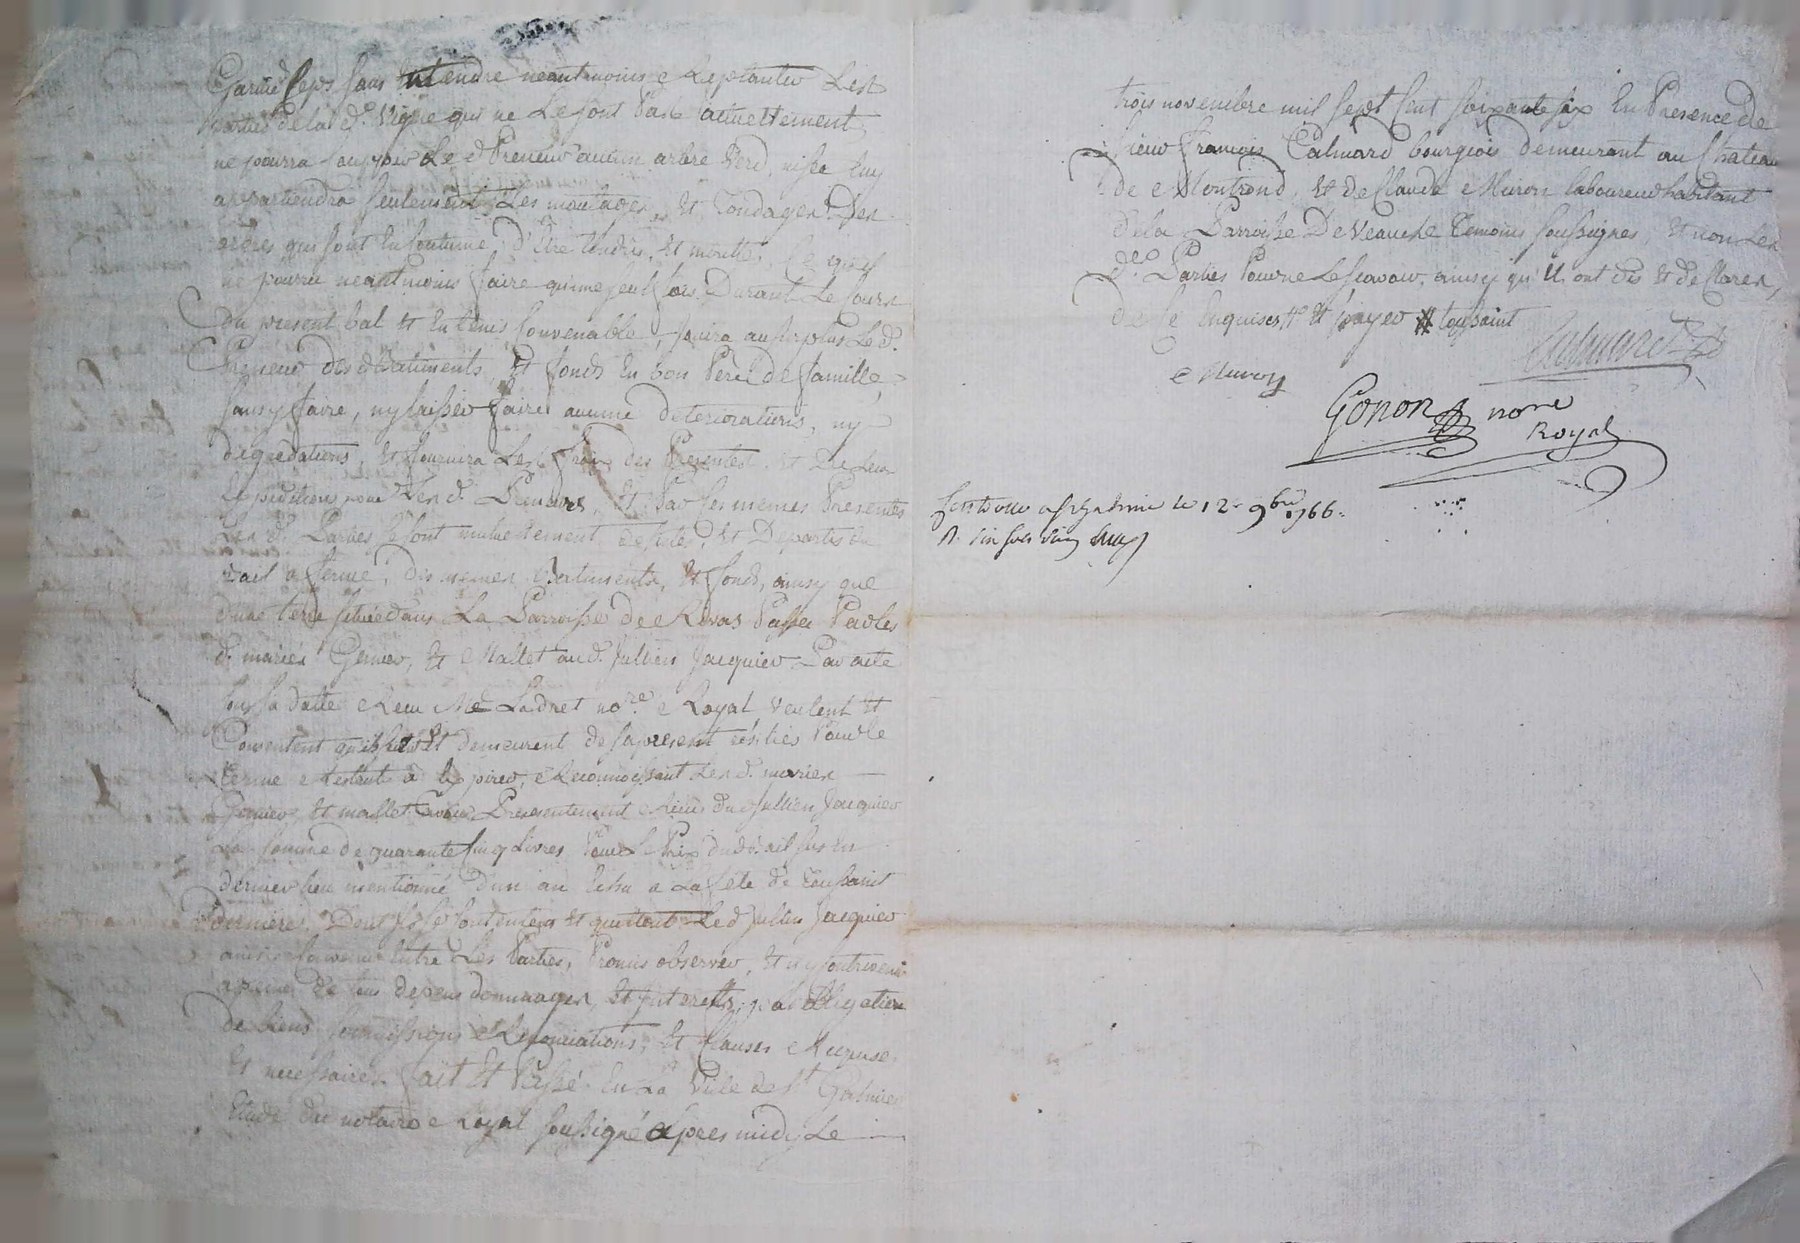 Garnie seps sans entendre neantmoins e Replanter Les
parties de la d.e Vigne qui ne Le sont Pas actuellement,
ne pourra Couper Le d Preneur aucun arbre Verd, ni sec luy
appartiendra seulement Les montages, Et Tondages Des
arbres qui sont En Coutume, d'Etre tondus, Et montés, Ce quil
ne pourra neantmoins faire qu'une seul fois Durant Le Cours
du present bal Et En tems Convenable, Jouira au surplus Le d.
Preneur des Batiments, Et fonds En bon Pere de famille
sans y faire, ny laisser faire aucune deteriorations, ny
degredations, Et fournira Les frais des Presentes, Et De Leur
Expedition pour Les d. Preneurs, Et Par les mêmes Presentes
Les d. Parties se sont mutuellement desistés, Et Departis du
bail a ferme, des memes Batiments, Et fonds, ainsy que
d'une terre située dans La Parroisse de Rivas Passée Par Les
d. mariés Grenier, Et Mallet au d. Jullien Jacquier Par acte
sous sa datte Reçu Me Lardret no.re Royal veulent Et
Consentent qu'ils soit Et demeurent de sapresent résiliés Pour Le
terme Restant à Expirer, Reconnoissant Les d. mariés
Grenier Et mallet avoir Presentement Reçu du d Jullien Jacquier
La somme de quarante Cinq Livres Pour Le Prix du d Bail sus En
dernier lieu mentionné d'un an Echu a La fête de Toussaint
derniere, Dont ils se Contentent Et quittent Le d Jullien Jacquier
ainsi Convenu Entre Les Parties, Promis observer, Et n'y Contrevenir
a peine de tous depens dommages, Et Interests, par obligation
de biens soumissions Renonciations, Et Clauses Requises
Et necessaires. fait Et Passé En La Ville de St Galmier
Etude du notaire Royal soussigné apres midy Le
trois novembre mil sept Cent soixante six En Presence de
sieur francois Calmard bourgeois demeurant au Chateau
de Montrond, Et de Claude Muron laboureur habitant
de la Parroisse De Veauche Temoins soussignés, Et non Les
d.es Parties Pour ne Le sçavoir, ainsy qu'ils ont dis Et déclarer,
de Ce Enquises Et payer toussaint
Calmard
Muron
Gonon nore
Royal
Controllé a St Galmier le 12 9bre 1766